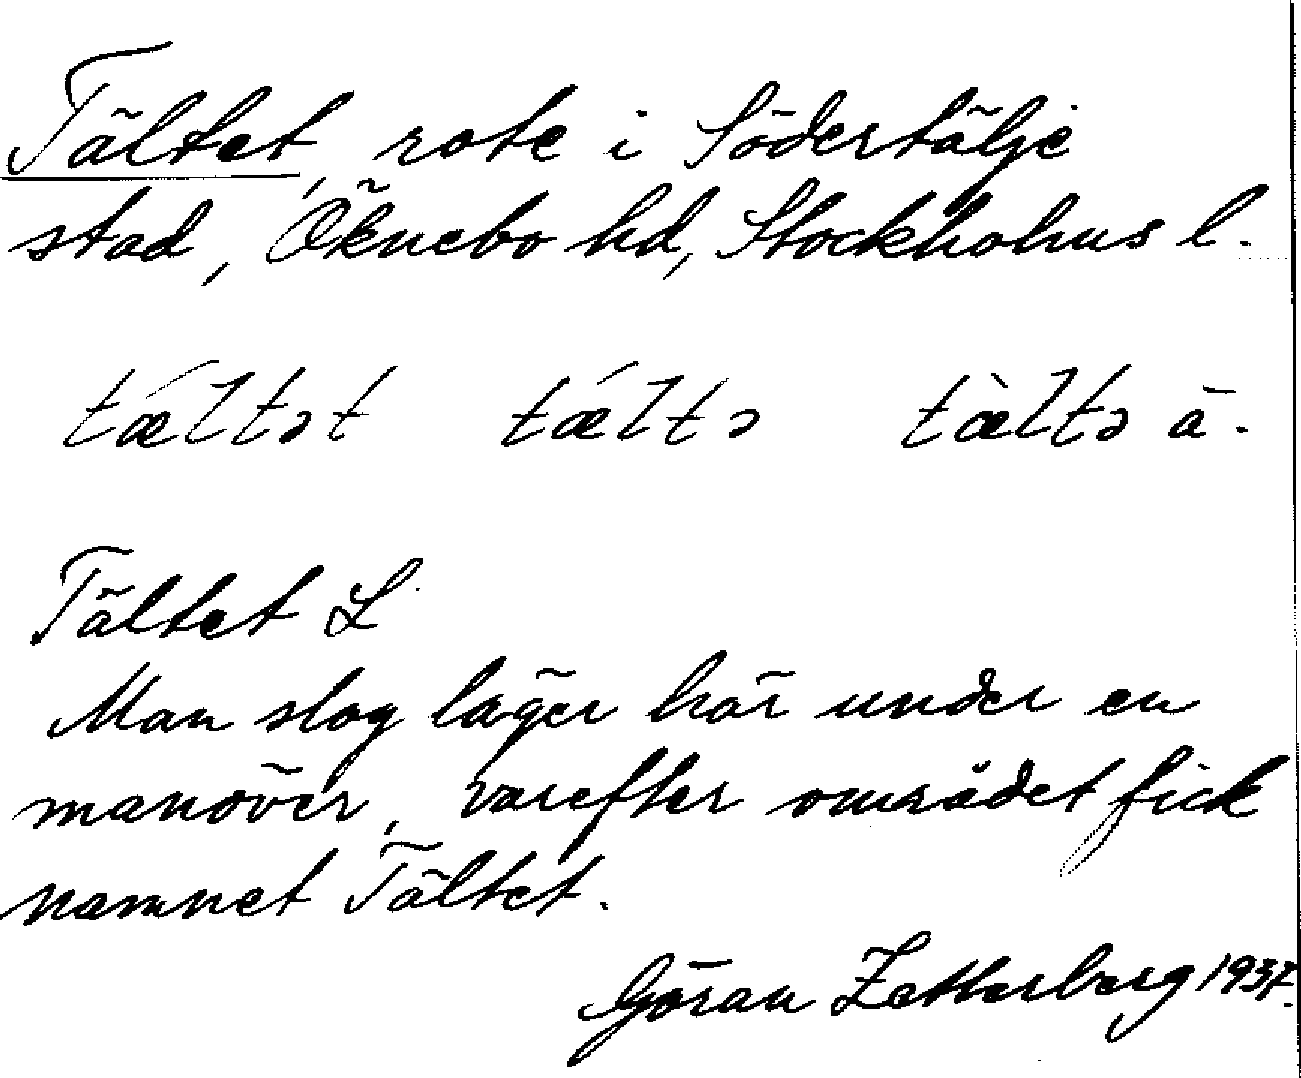 Tältet, rote i Södertälje
stad, Öknebo hd, Stockholms l.
tǽltət tǽltə tæ̀ltə ä.
Tältet L
Man slog läger här under en
manöver, varefter området fick
namnet Tältet.
Göran Zetterberg 1937.